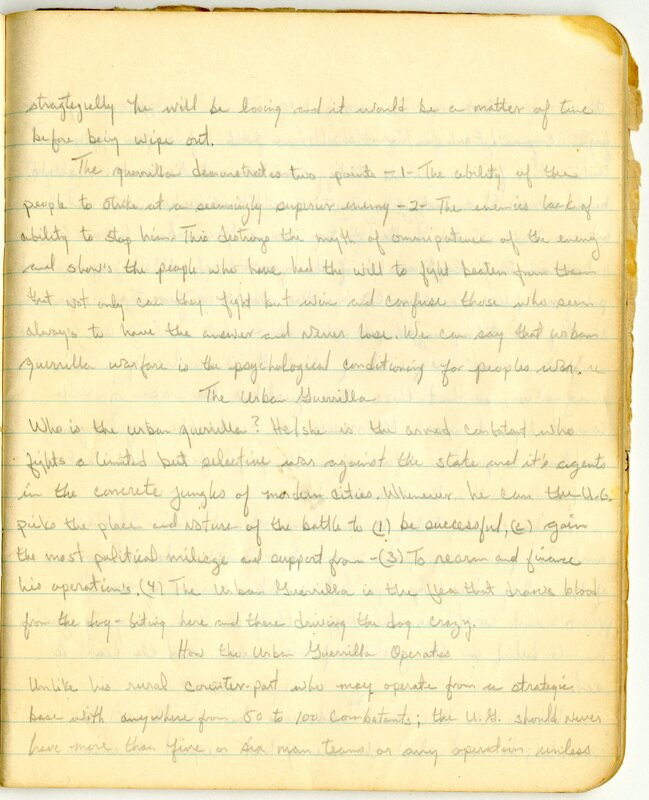 stragtegully he will be losing and it would be a matter of time
before being wipe out.
The guerrilla demonstrates two points -1- The ability of the
people to strike at a seemingly superior enemy -2- The enemies lack of
ability to stop him. This destroys the myth of omnipotence of the enemy
and show's the people who have had the will to fight beaten from them
that not only can they fight but win and confuse those who seem
always to have the answer and never lose. We can say that urban
guerrilla warfare is the psychological conditioning for peoples war.
The Urban Guerrilla
Who is the urban guerrilla? He/she is the armed combatant who
fights a limited but selective war against the state and it's agents
in the concrete jungles of modern cities. Whenever he can the U.G.
picks the place and nature of the battle to (1) be successful, (2) gain
the most political mileage and support from - (3) To rearm and finance
his operation's. (4) The Urban Guerrilla is the flea that draws blood
from the dog - biting here and there driving the dog crazy.
How the Urban Guerrilla Operates
Unlike his rural counter-part who may operate from a strategic
base with anywhere from 50 to 100 combatants; the U.G. should never
have more than five or six man teams on any operation, unless